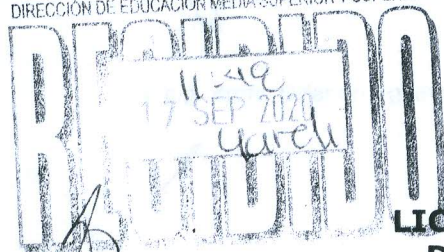 DIRECCIÓN DE EDUCACIÓN MEDIA SUPERIOR Y
RECIBIDO
17 SEP 2020
Yareli
LIC